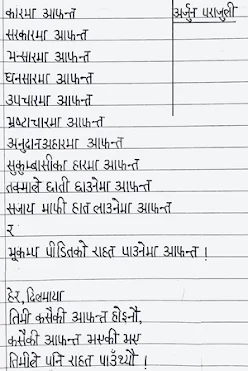 कारमा आफन्त
अर्जुन पराजुली
सरकारमा आफन्त
भन्सारमा आफन्त
घनसारमा आफन्त
उपचारमा आफन्त
भ्रष्टाचारमा आफन्त
अनुदानअहारमा आफन्त
सुकुम्बासीका हारमा आफन्त
तक्माले छाती छाउनेमा आफन्त
सजाय माफी हात लाउनेमा आफन्त
र
भूकम्प पीडितको राहत पाउनेमा आफन्त !
हेर, दिलमाया
तिमी कसैकी आफन्त होइनौ,
कसैकी आफन्त भएकी भए
तिमीले पनि राहत पाउँथ्यौ !